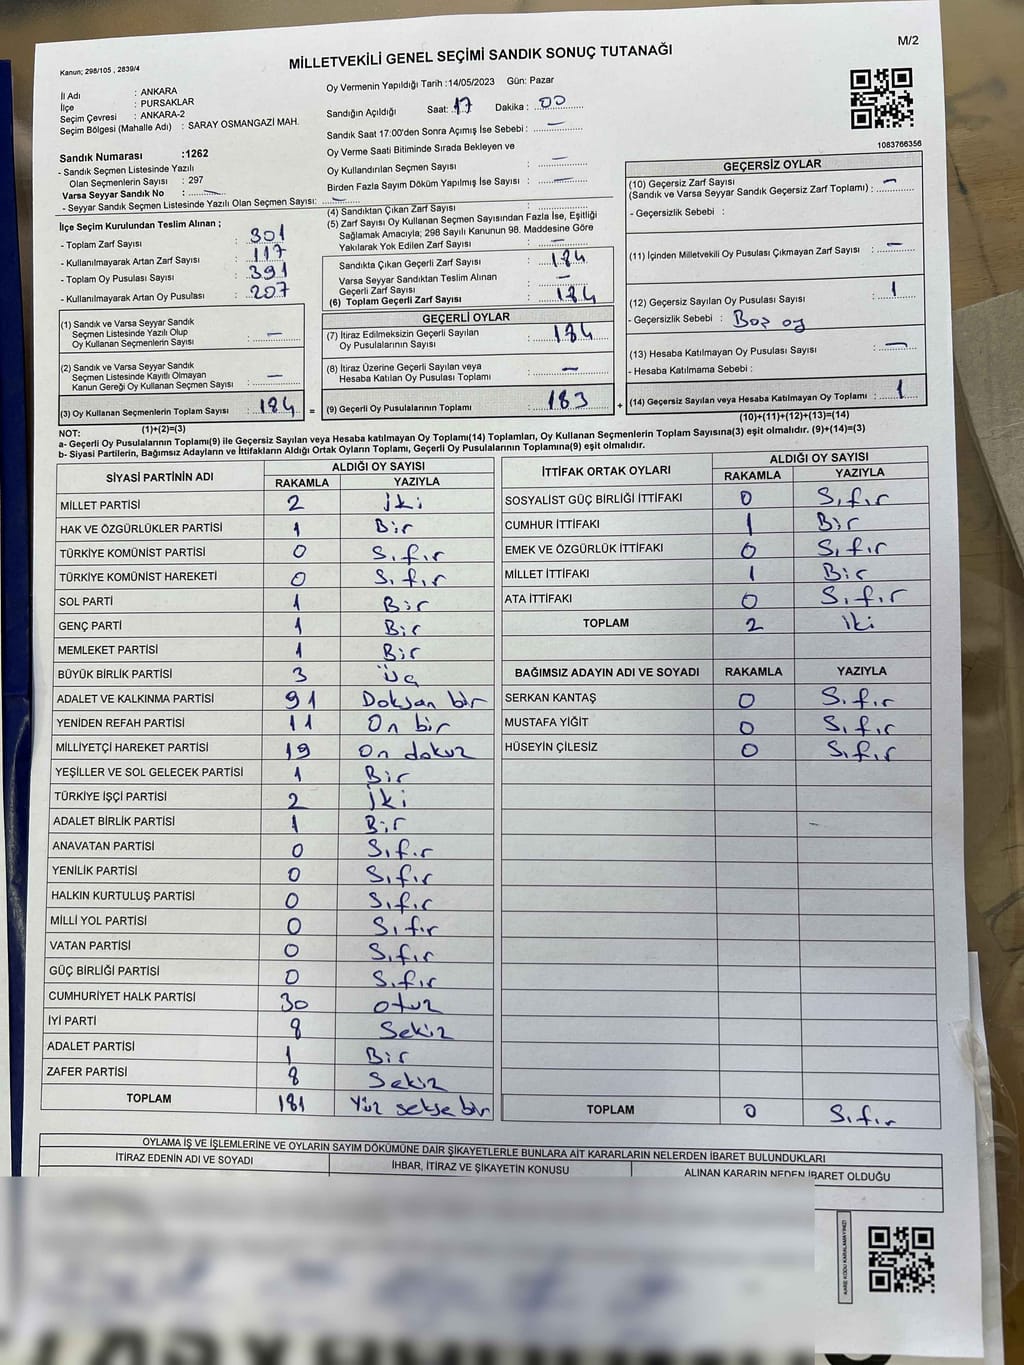 M/2
Kanun; 298/105 , 2839/4
MİLLETVEKİLİ GENEL SEÇİMİ SANDIK SONUÇ TUTANAĞI
İl Adı : ANKARA
İlçe : PURSAKLAR
Seçim Çevresi : ANKARA-2
Seçim Bölgesi (Mahalle Adı) : SARAY OSMANGAZİ MAH.
Sandık Numarası :1262
- Sandık Seçmen Listesinde Yazılı
Olan Seçmenlerin Sayısı : 297
Varsa Seyyar Sandık No : —
- Seyyar Sandık Seçmen Listesinde Yazılı Olan Seçmen Sayısı: —
Oy Vermenin Yapıldığı Tarih :14/05/2023 Gün: Pazar
Sandığın Açıldığı Saat: 17 Dakika : 00
Sandık Saat 17:00'den Sonra Açımış İse Sebebi : —
Oy Verme Saati Bitiminde Sırada Bekleyen ve
Oy Kullandırılan Seçmen Sayısı : —
Birden Fazla Sayım Döküm Yapılmış İse Sayısı : —
1083766356
İlçe Seçim Kurulundan Teslim Alınan ;
- Toplam Zarf Sayısı : 301
- Kullanılmayarak Artan Zarf Sayısı : 117
- Toplam Oy Pusulası Sayısı : 391
- Kullanılmayarak Artan Oy Pusulası : 207
(1) Sandık ve Varsa Seyyar Sandık
Seçmen Listesinde Yazılı Olup
Oy Kullanan Seçmenlerin Sayısı : —
(2) Sandık ve Varsa Seyyar Sandık
Seçmen Listesinde Kayıtlı Olmayan
Kanun Gereği Oy Kullanan Seçmen Sayısı : —
(3) Oy Kullanan Seçmenlerin Toplam Sayısı : 184 =
(1)+(2)=(3)
(4) Sandıktan Çıkan Zarf Sayısı :
(5) Zarf Sayısı Oy Kullanan Seçmen Sayısından Fazla İse, Eşitliği
Sağlamak Amacıyla; 298 Sayılı Kanunun 98. Maddesine Göre
Yakılarak Yok Edilen Zarf Sayısı : —
Sandıkta Çıkan Geçerli Zarf Sayısı : 184
Varsa Seyyar Sandıktan Teslim Alınan
Geçerli Zarf Sayısı : —
(6) Toplam Geçerli Zarf Sayısı : 184
GEÇERLİ OYLAR
(7) İtiraz Edilmeksizin Geçerli Sayılan
Oy Pusulalarının Sayısı : 184
(8) İtiraz Üzerine Geçerli Sayılan veya
Hesaba Katılan Oy Pusulası Toplamı : —
(9) Geçerli Oy Pusulalarının Toplamı : 183 +
GEÇERSİZ OYLAR
(10) Geçersiz Zarf Sayısı
(Sandık ve Varsa Seyyar Sandık Geçersiz Zarf Toplamı) : —
- Geçersizlik Sebebi :
(11) İçinden Milletvekili Oy Pusulası Çıkmayan Zarf Sayısı : —
(12) Geçersiz Sayılan Oy Pusulası Sayısı : 1
- Geçersizlik Sebebi : Boş oy
(13) Hesaba Katılmayan Oy Pusulası Sayısı : —
- Hesaba Katılmama Sebebi :
(14) Geçersiz Sayılan veya Hesaba Katılmayan Oy Toplamı : 1
(10)+(11)+(12)+(13)=(14)
NOT:
a- Geçerli Oy Pusulalarının Toplamı(9) ile Geçersiz Sayılan veya Hesaba katılmayan Oy Toplamı(14) Toplamları, Oy Kullanan Seçmenlerin Toplam Sayısına(3) eşit olmalıdır. (9)+(14)=(3)
b- Siyasi Partilerin, Bağımsız Adayların ve İttifakların Aldığı Ortak Oyların Toplamı, Geçerli Oy Pusulalarının Toplamına(9) eşit olmalıdır.
SİYASİ PARTİNİN ADI ALDIĞI OY SAYISI
RAKAMLA YAZIYLA
MİLLET PARTİSİ 2 iki
HAK VE ÖZGÜRLÜKLER PARTİSİ 1 Bir
TÜRKİYE KOMÜNİST PARTİSİ 0 Sıfır
TÜRKİYE KOMÜNİST HAREKETİ 0 Sıfır
SOL PARTİ 1 Bir
GENÇ PARTİ 1 Bir
MEMLEKET PARTİSİ 1 Bir
BÜYÜK BİRLİK PARTİSİ 3 Üç
ADALET VE KALKINMA PARTİSİ 91 Doksan bir
YENİDEN REFAH PARTİSİ 11 On bir
MİLLİYETÇİ HAREKET PARTİSİ 19 On dokuz
YEŞİLLER VE SOL GELECEK PARTİSİ 1 Bir
TÜRKİYE İŞÇİ PARTİSİ 2 İki
ADALET BİRLİK PARTİSİ 1 Bir
ANAVATAN PARTİSİ 0 Sıfır
YENİLİK PARTİSİ 0 Sıfır
HALKIN KURTULUŞ PARTİSİ 0 Sıfır
MİLLİ YOL PARTİSİ 0 Sıfır
VATAN PARTİSİ 0 Sıfır
GÜÇ BİRLİĞİ PARTİSİ 0 Sıfır
CUMHURİYET HALK PARTİSİ 30 otuz
İYİ PARTİ 8 Sekiz
ADALET PARTİSİ 1 Bir
ZAFER PARTİSİ 8 Sekiz
TOPLAM 181 Yüz sekse bir
İTTİFAK ORTAK OYLARI ALDIĞI OY SAYISI
RAKAMLA YAZIYLA
SOSYALİST GÜÇ BİRLİĞİ İTTİFAKI 0 Sıfır
CUMHUR İTTİFAKI 1 Bir
EMEK VE ÖZGÜRLÜK İTTİFAKI 0 Sıfır
MİLLET İTTİFAKI 1 Bir
ATA İTTİFAKI 0 Sıfır
TOPLAM 2 iki
BAĞIMSIZ ADAYIN ADI VE SOYADI RAKAMLA YAZIYLA
SERKAN KANTAŞ 0 Sıfır
MUSTAFA YİĞİT 0 Sıfır
HÜSEYİN ÇİLESİZ 0 Sıfır
TOPLAM 0 Sıfır
OYLAMA İŞ VE İŞLEMLERİNE VE OYLARIN SAYIM DÖKÜMÜNE DAİR ŞİKAYETLERLE BUNLARA AİT KARARLARIN NELERDEN İBARET BULUNDUKLARI
İTİRAZ EDENİN ADI VE SOYADI İHBAR, İTİRAZ VE ŞİKAYETİN KONUSU ALINAN KARARIN NEDEN İBARET OLDUĞU
KARE KODU KARALAMAYINIZ!